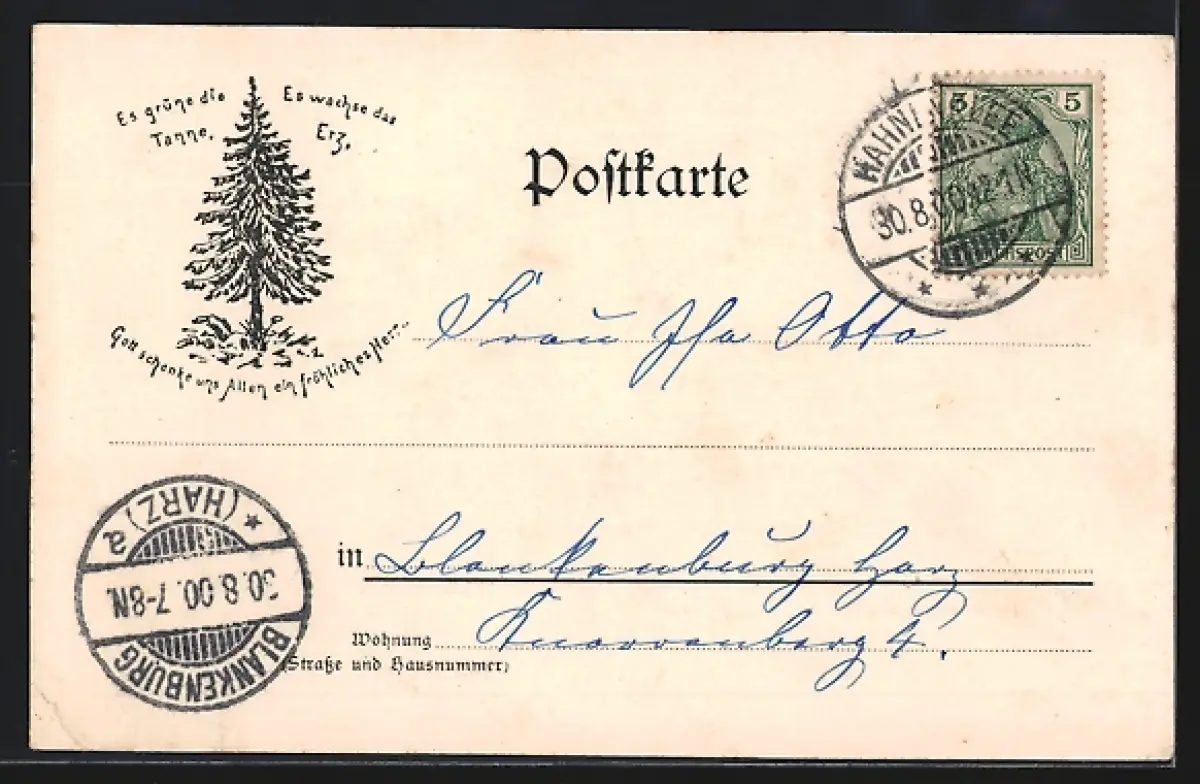 Es grüne die
Tanne,
Es wachse das
Erz,
Gott schenke uns Allen ein fröhliches Herz.
Postkarte
5 5
REICHSPOST
HAHNENKLEE
30.8.00 12-1N
* *
Frau Ilse Otto
in Blankenburg Harz
Wohnung
(Straße und Hausnummer)
Knorrenberg 4.
BLANKENBURG
30.8.00.7-8N.
* (HARZ) a